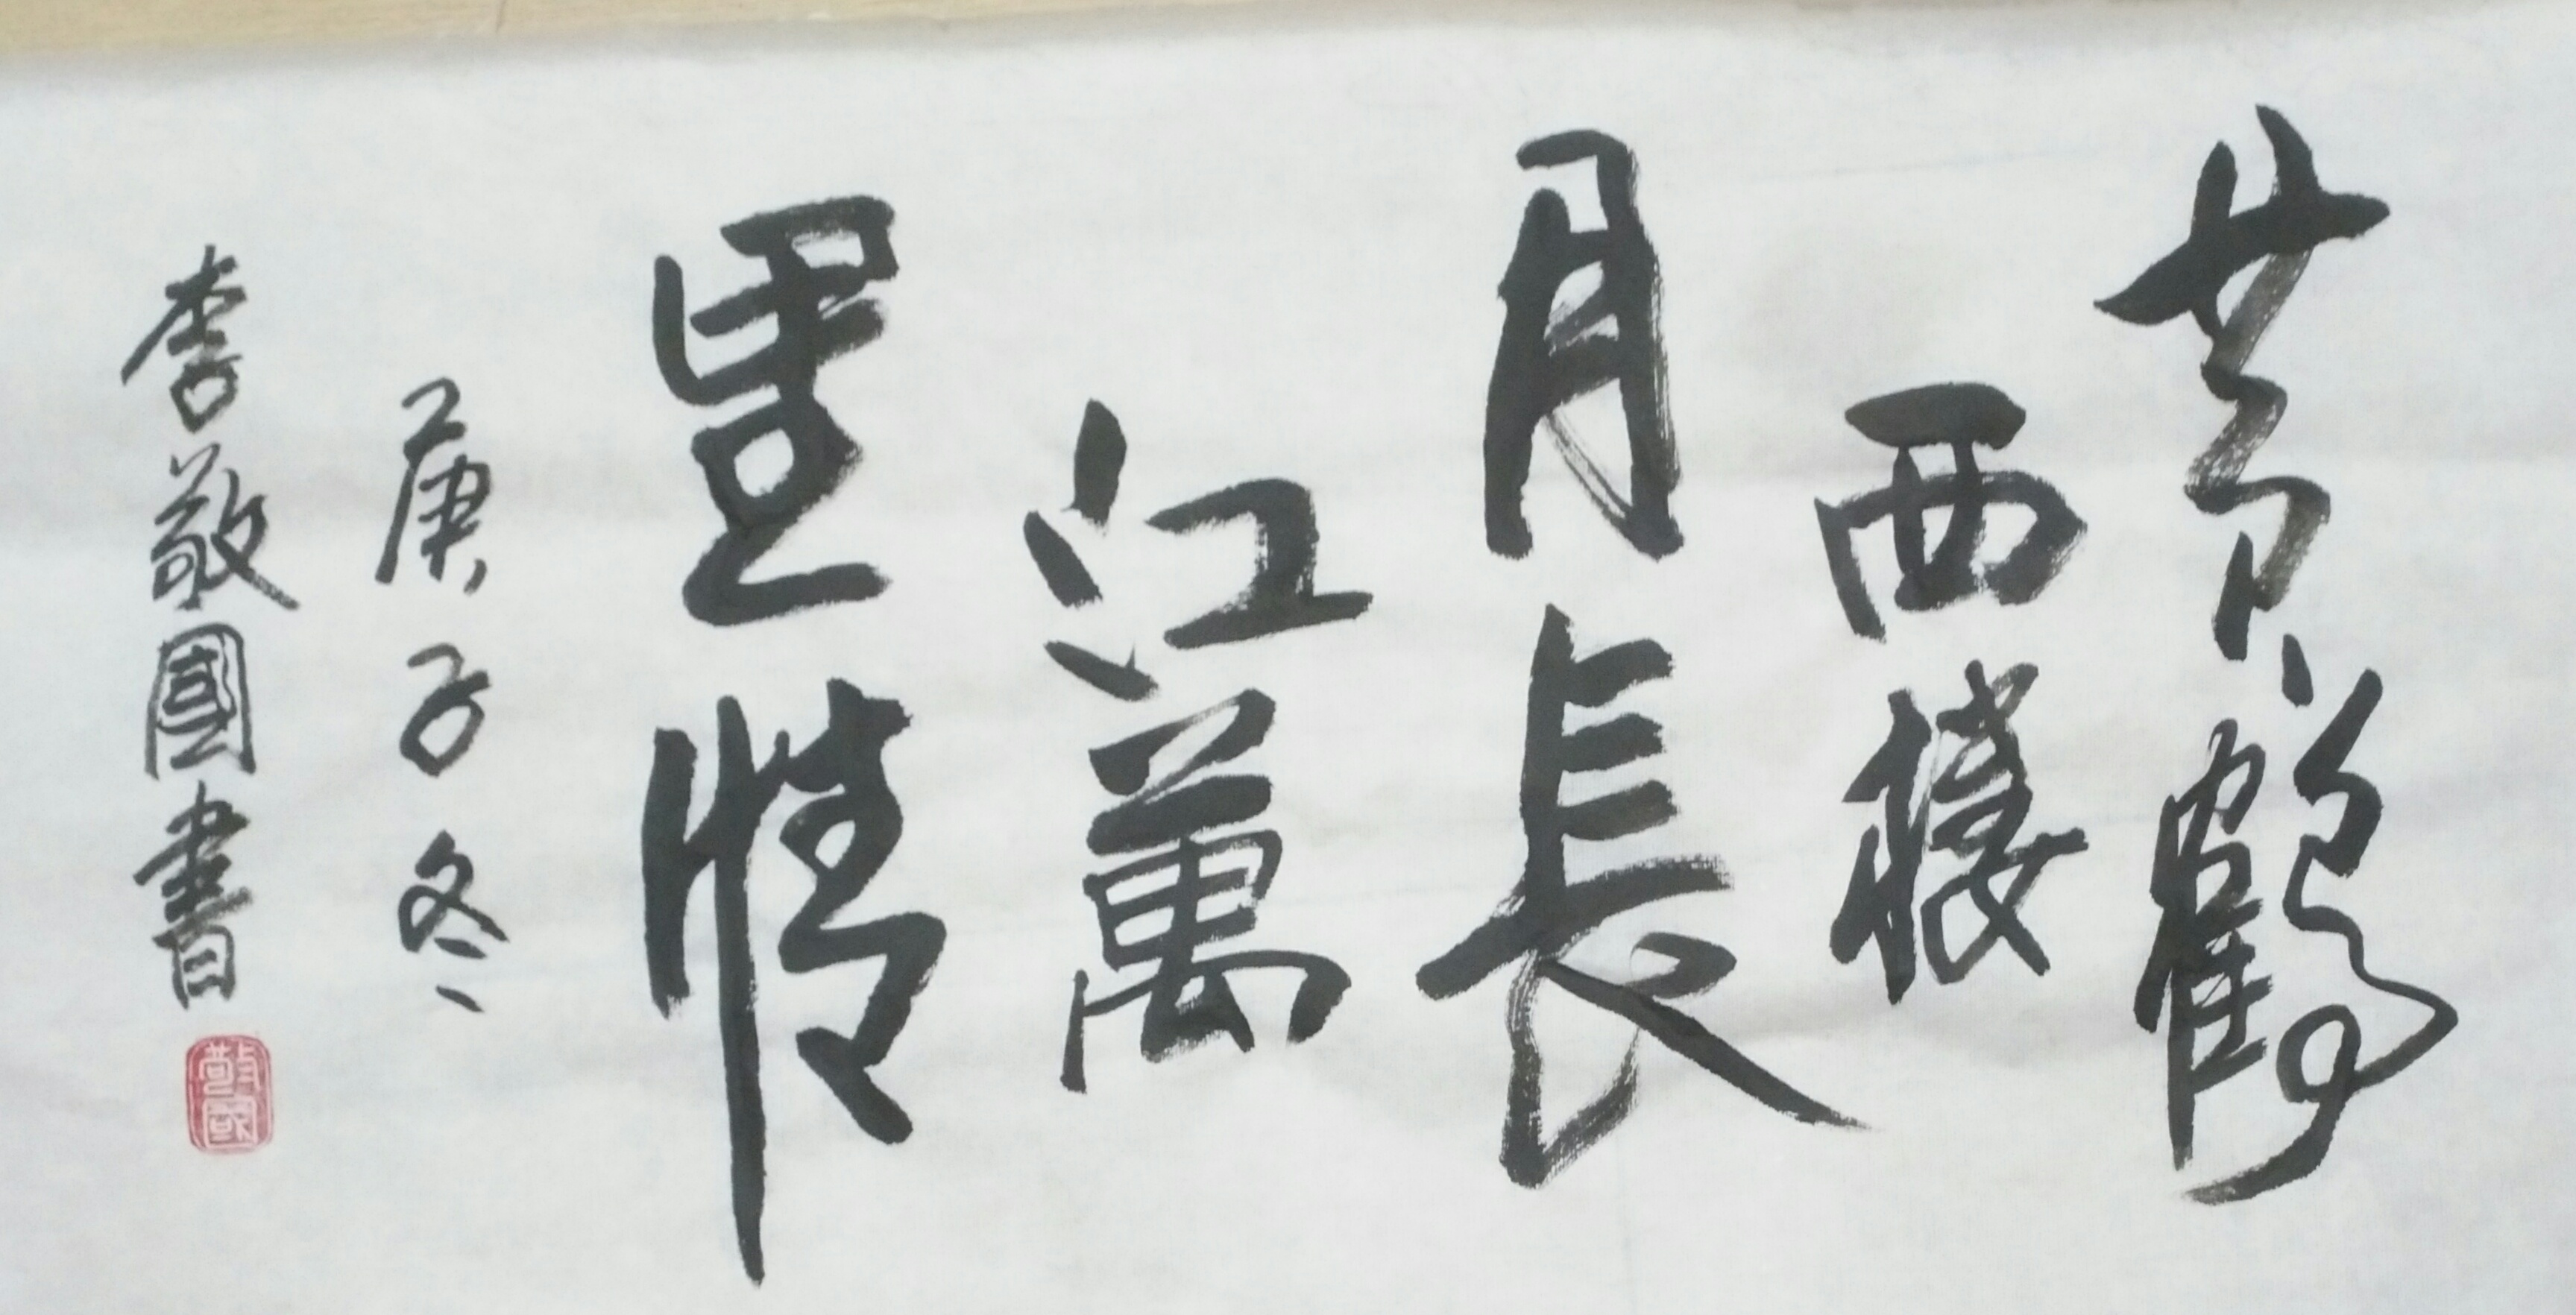 黄鶴
西樓
月長
江萬
里情
庚子冬
李敬國書
敬國